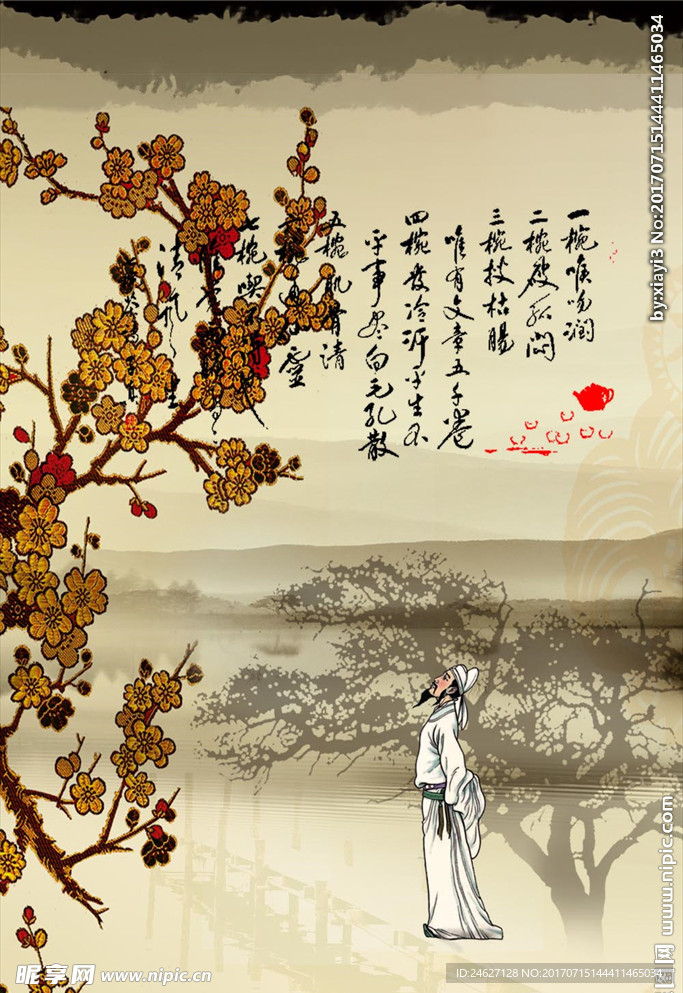 一椀喉吻润
二椀破孤闷
三椀搜枯肠
唯有文章五千卷
四椀发冷汗平生不
平事尽向毛孔散
五椀肌骨清
靈
七椀喫
清风生
by:xiayi3 No:20170715144411465034
www.nipic.com
昵享网 www.nipic.cn
ID:24627128 NO:20170715144411465034